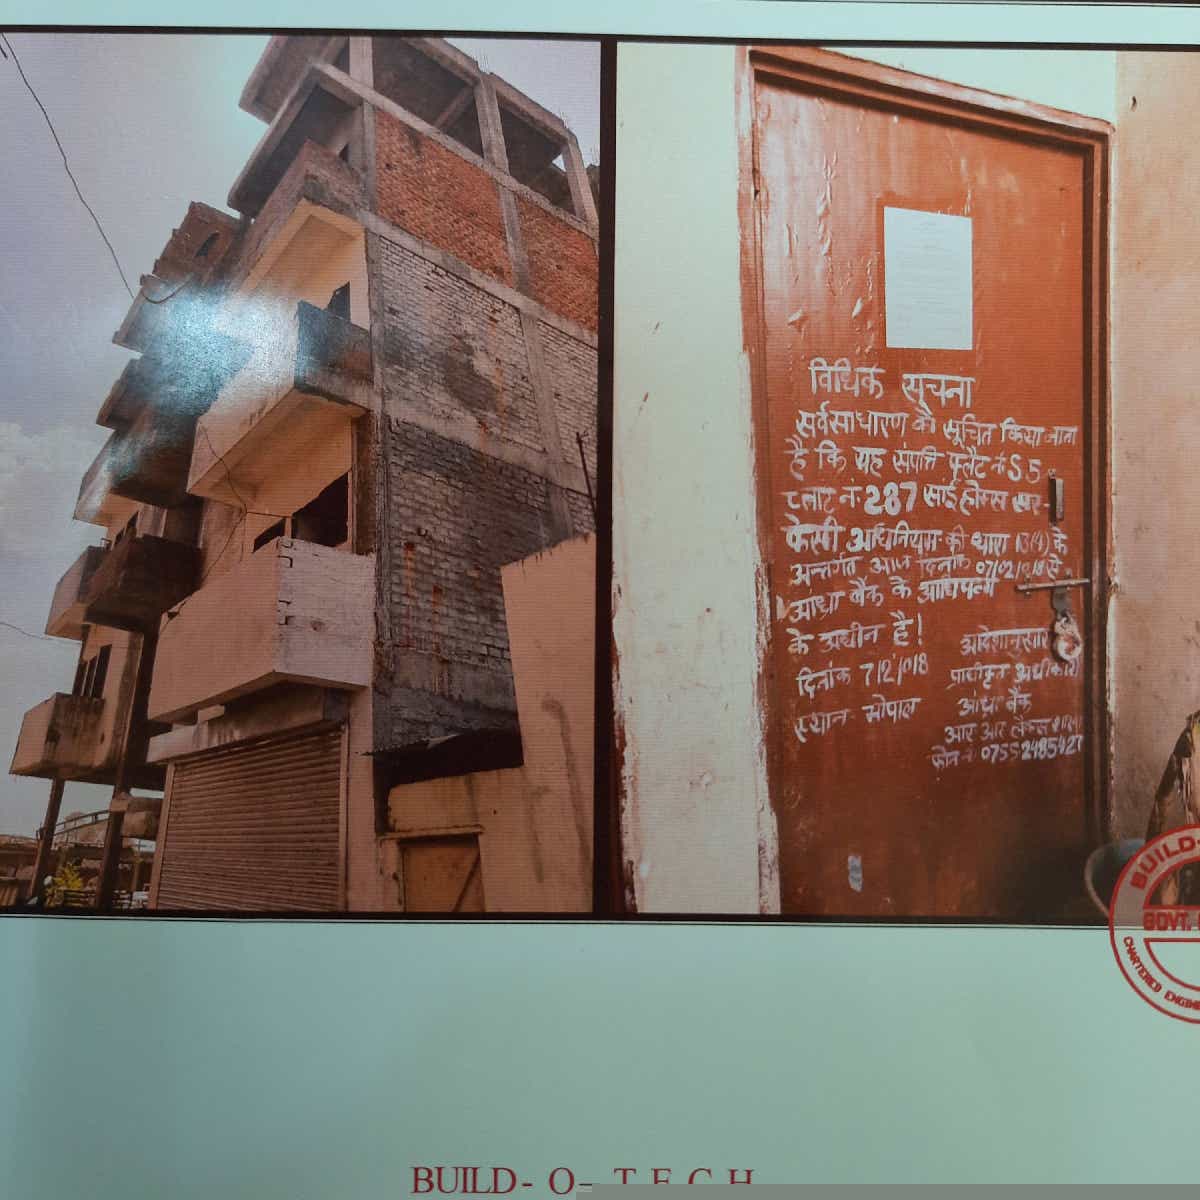 विधिक सूचना
सर्वसाधारण को सूचित किया जाता
है कि यह संपत्ति फ्लैट नं S 5
प्लाट नं 287 साई होम्स सर-
फेसी अधिनियम की धारा 13(4) के
अन्तर्गत आज दिनांक 07/02/018 से
आंध्रा बैंक के आधिपत्य
के अधीन है!
दिनांक 7/2/018
स्थान भोपाल
आदेशानुसार
प्राधीकृत अधीकारी
आंध्रा बैंक
आर आर लैकस शाखा
फोन नं 0755 2485427
BUILD-
GOVT.
CHARTERED ENGINE
BUILD- O- T E C H